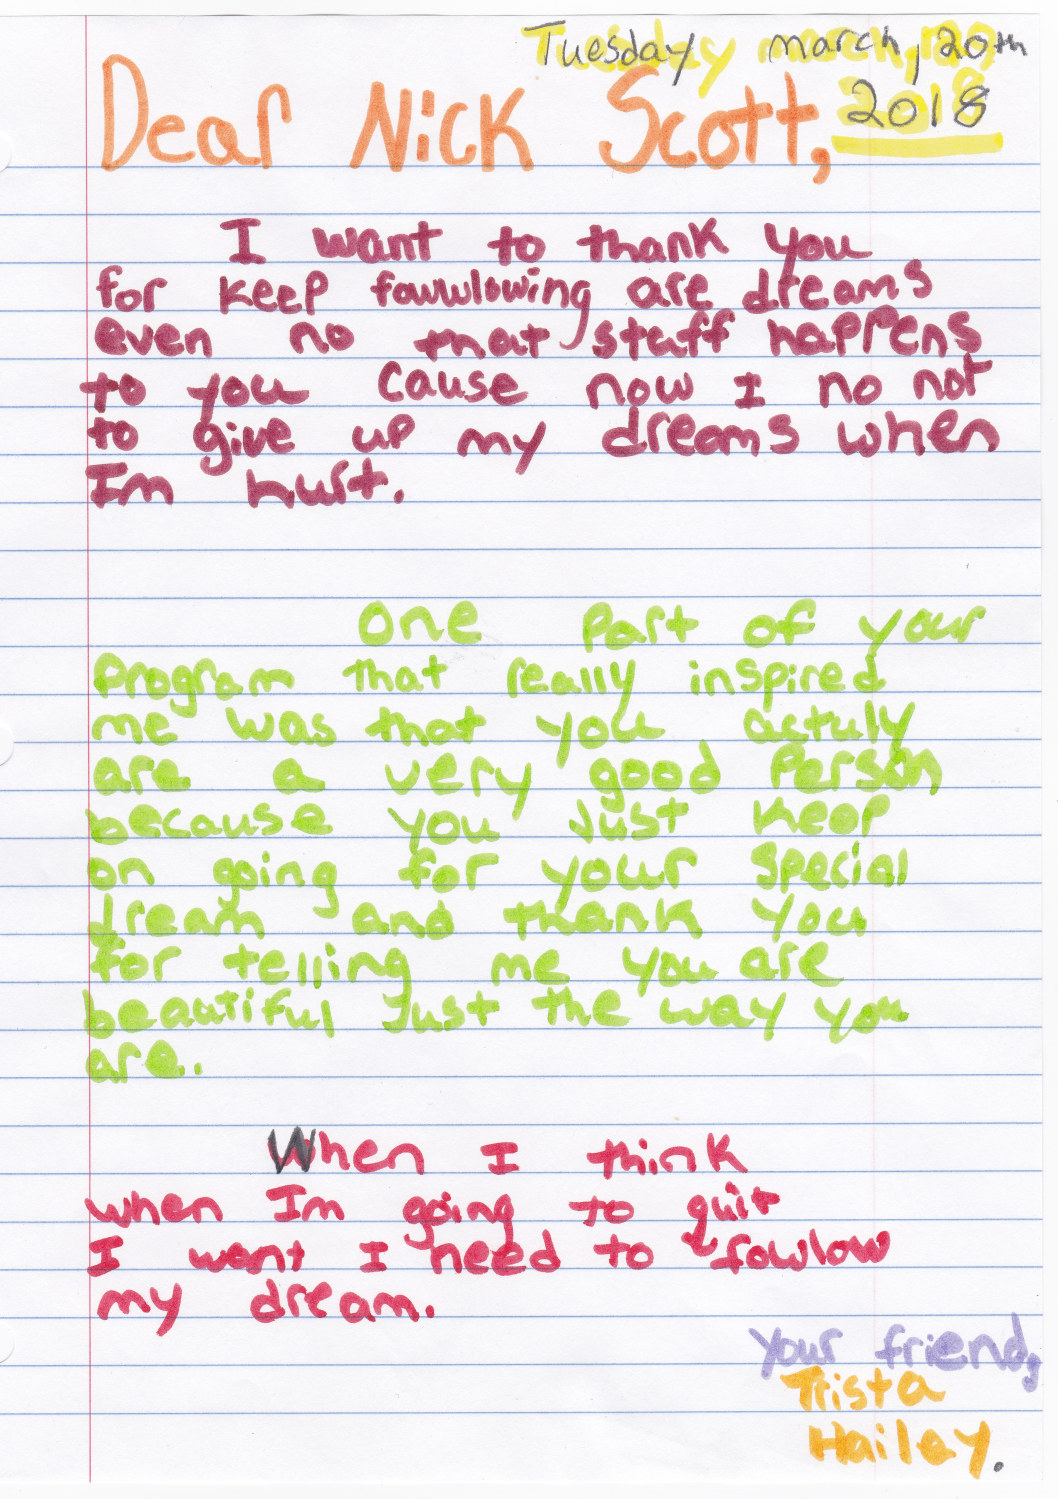 Tuesday march, 20th
2018
Dear Nick Scott,
I want to thank you
for keep fowwlowing are dreams
even no that stuff happens
to you cause now I no not
to give up my dreams when
Im hurt.
One part of your
program that really inspired
me was that you actuly
are a very good Person,
because you just keep
on going for your special
dream and thank you
for telling me you are
beautiful Just the way you
are.
When I think
when Im going to quit
I wont I need to fowlow
my dream.
your friend,
Trista
Hailey.